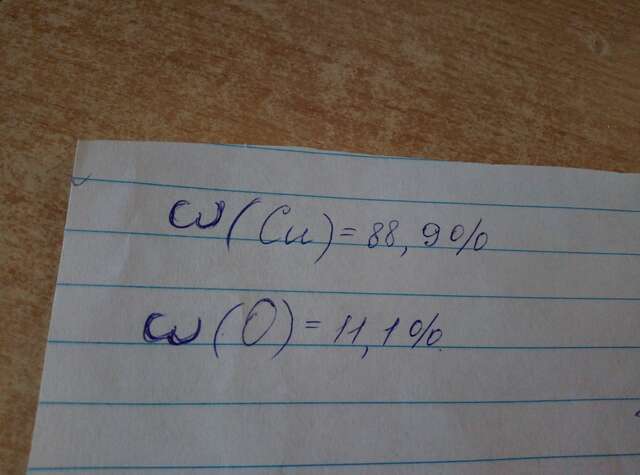 ω(Cu) = 88,9%
ω(O) = 11,1%